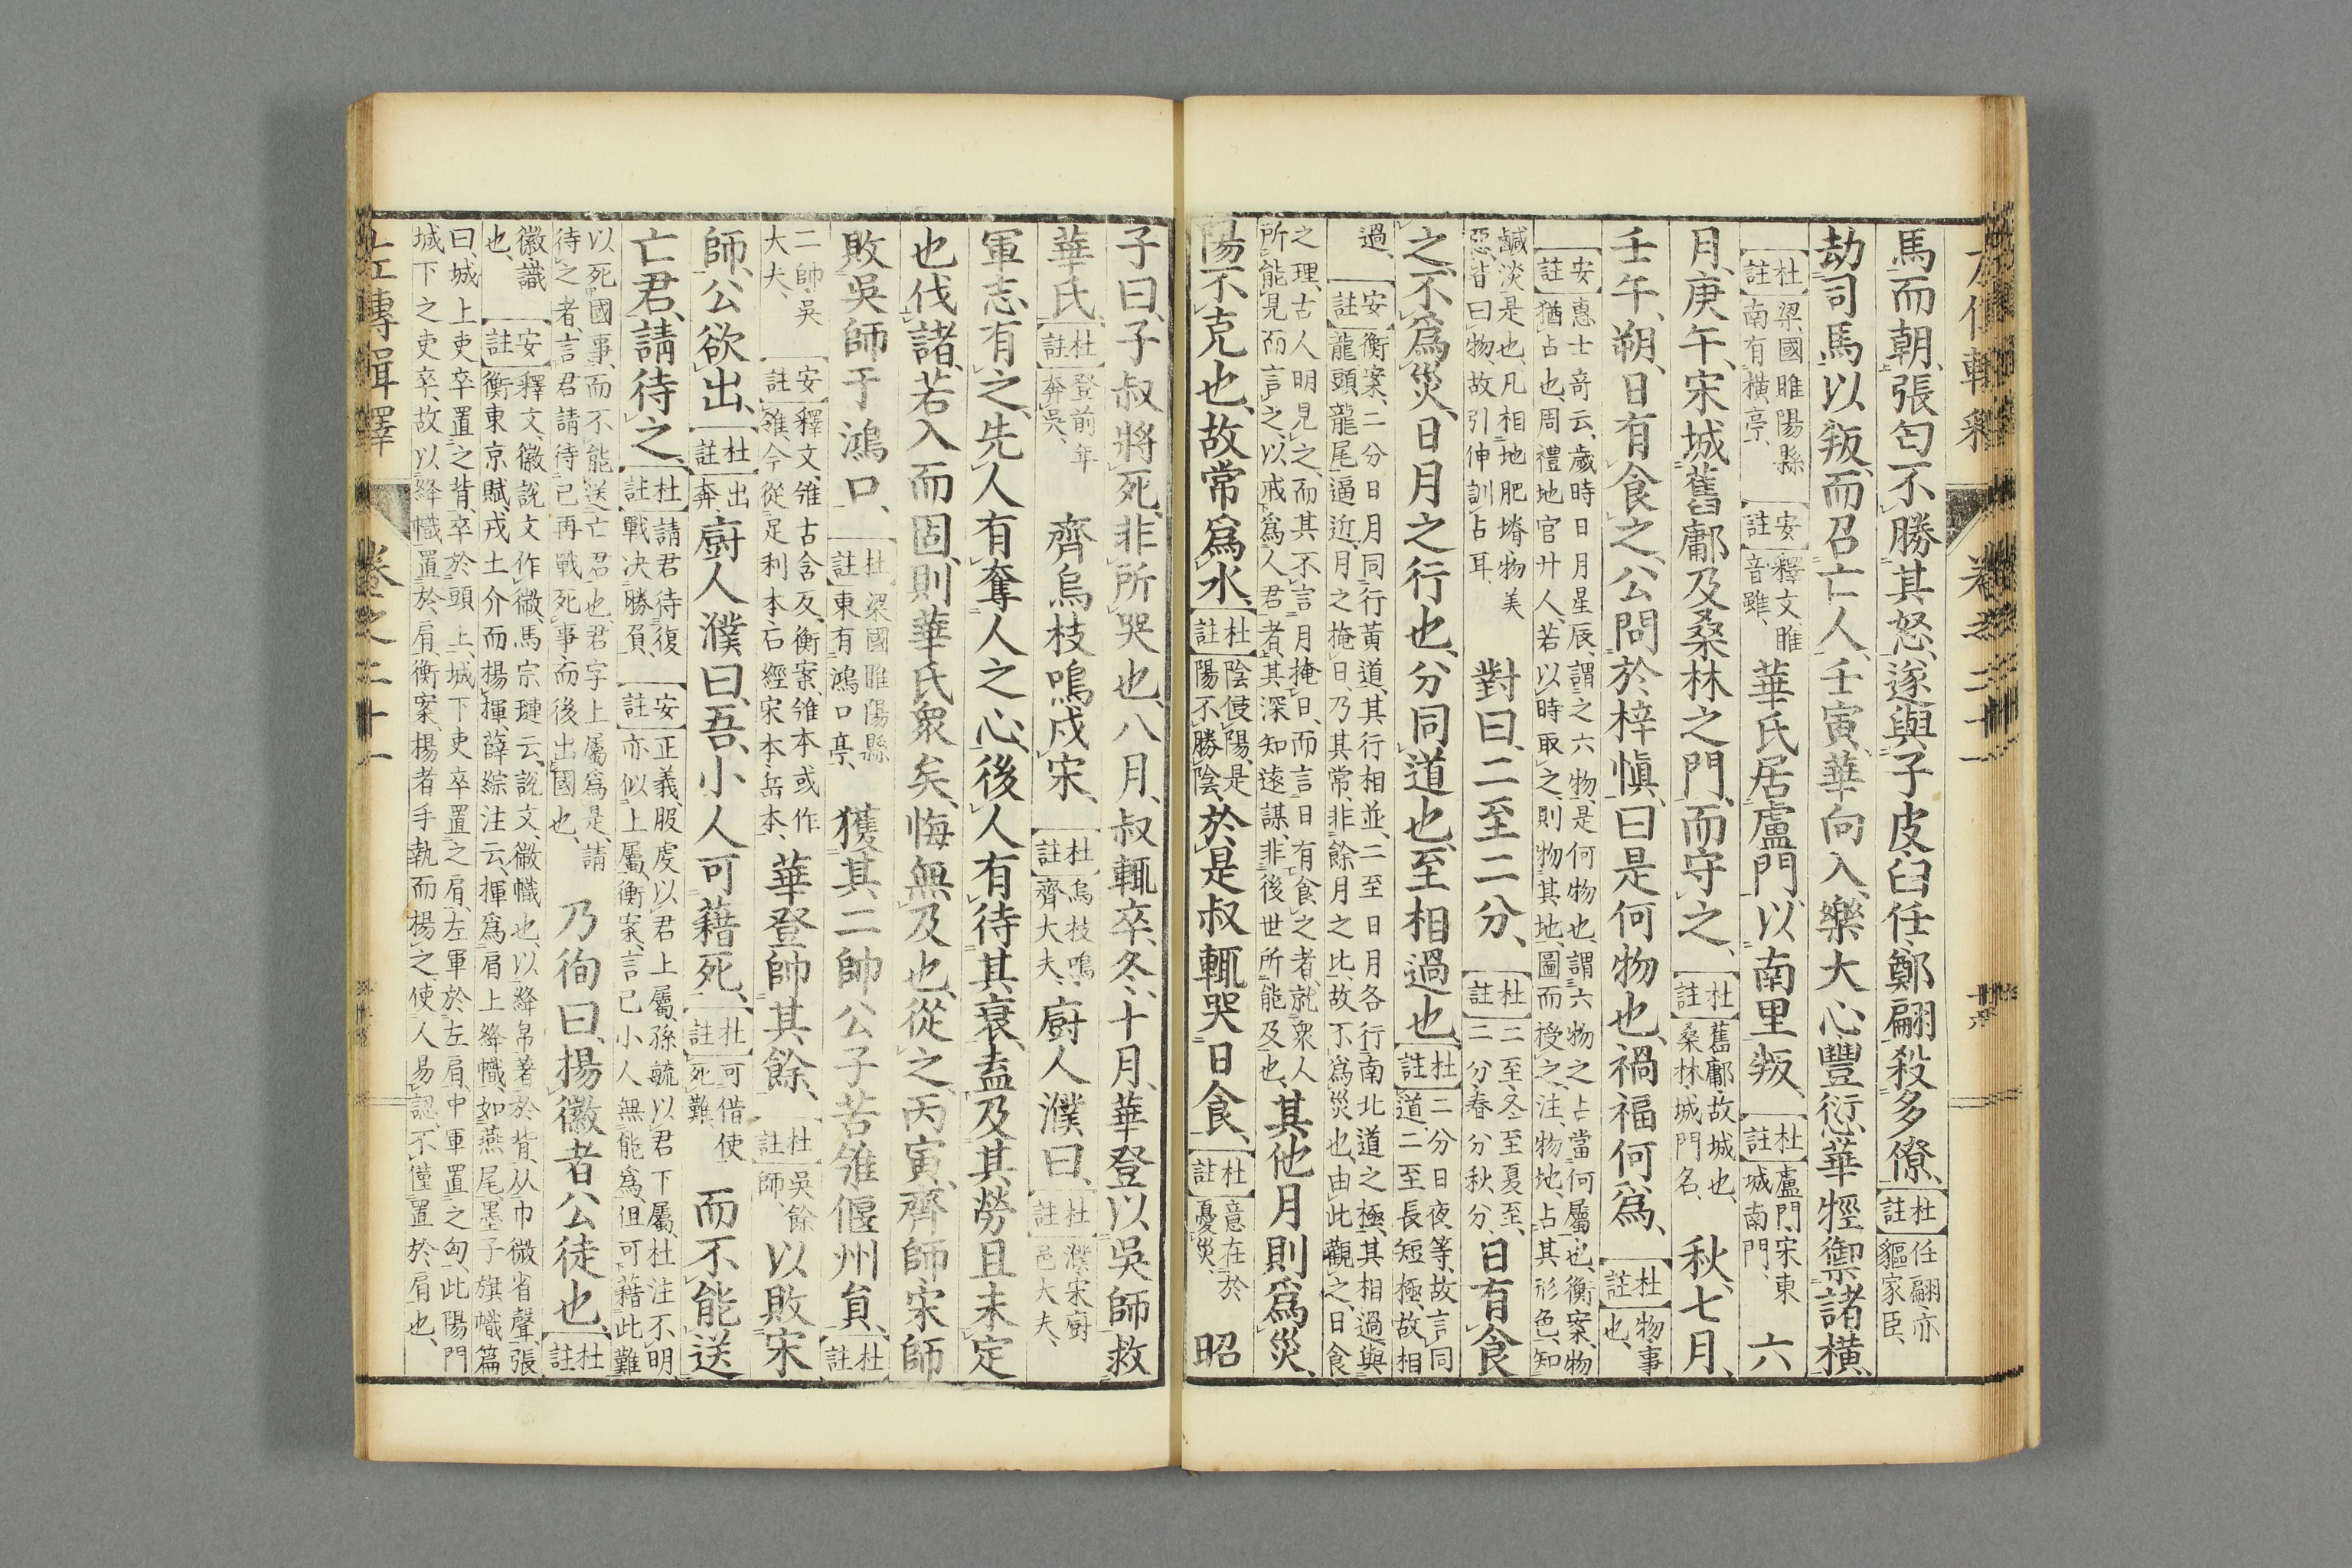 馬而朝、張匄不勝其怒、遂與子皮臼任鄭翩殺多僚、【杜註】任翩、亦貙家臣、
劫司馬以叛、而召亡人、壬寅、華向入、樂大心豐愆華牼禦諸橫、
【杜註】梁國睢陽縣南有橫亭、【安註】釋文、睢音雖、華氏居盧門、以南里叛、【杜註】盧門、宋東城南門、六
月、庚午、宋城舊鄘及桑林之門、而守之、【杜註】舊鄘、故城也、桑林、城門名、秋、七月、
壬午、朔、日有食之、公問於梓慎、曰、是何物也、禍福何爲、【杜註】物、事也、
【安註】惠士奇云、歲時日月星辰、謂之六物、是何物也、謂六物之占當何屬也、衡案、物猶占也、周禮地官廾人、若以時取之、則物其地圖而授之、注、物地、占其形色、知
鹹淡是也、凡相地肥瘠物美惡、皆曰物、故引伸訓占耳、對曰、二至二分、【杜註】二至、冬至夏至、二分、春分秋分、日有食
之、不爲災、日月之行也、分同道也、至相過也、【杜註】二分日夜等、故言同道、二至長短極、故相
過、【安註】衡案、二分日月同行黃道、其行相並、二至日月各行南北道之極、其相過與龍頭龍尾逼近、月之掩日、乃其常、非餘月之比、故不爲災也、由此觀之、日食
之理、古人明見之、而其不言月掩日、而言日有食之者、就衆人所能見而言之、以戒爲人君者、其深知遠謀、非後世所能及也、其他月則爲災、
陽不克也、故常爲水、【杜註】陰侵陽、是陽不勝陰、於是叔輒哭日食、【杜註】意在於憂災、昭
子曰、子叔將死、非所哭也、八月、叔輒卒、冬、十月、華登以吳師救
華氏、【杜註】登前年奔吳、齊烏枝鳴戍宋、【杜註】烏枝鳴、齊大夫、廚人濮曰、【杜註】濮、宋廚邑大夫、
軍志、有之、先人有奪人之心、後人有待其衰、盍及其勞且未定
也伐諸、若入而固、則華氏衆矣、悔無及也、從之、丙寅、齊師宋師
敗吳師于鴻口、【杜註】梁國睢陽縣東有鴻口亭、獲其二帥公子苦雂偃州員、【杜註】
二帥、吳大夫、【安註】釋文、雂古含反、衡案、雂本或作雒、今從足利本石經宋本岳本、華登帥其餘、【杜註】吳餘師、以敗宋
師、公欲出、【杜註】出奔、廚人濮曰、吾小人可藉死、【杜註】可借使死難、而不能送
亡君、請待之、【杜註】請君待復戰決勝負、【安註】正義、服虔以君上屬、孫毓以君下屬、杜注不明、亦似上屬、衡案、言己小人無能爲、但可藉此難
以死國事、而不能送亡君也、君字上屬爲是、請待之者、言君請待己再戰死事、而後出國也、乃徇曰、揚徽者公徒也、【杜註】
徽、識也、【安註】釋文、徽說文作微、馬宗璉云、說文、微幟也、以絳帛著於背、从巾微省聲、張衡東京賦、戎士介而揚揮、薛綜注云、揮爲肩上絳幟、如燕尾、墨子旗幟篇
曰、城上吏卒置之背、卒於頭上、城下吏卒置之肩、左軍於左肩、中軍置之匈、此陽門城下之吏卒、故以絳幟置於肩、衡案、揚者手執而揚之、使人易認、不僅置於肩也、
左傳輯釋　卷之二十一